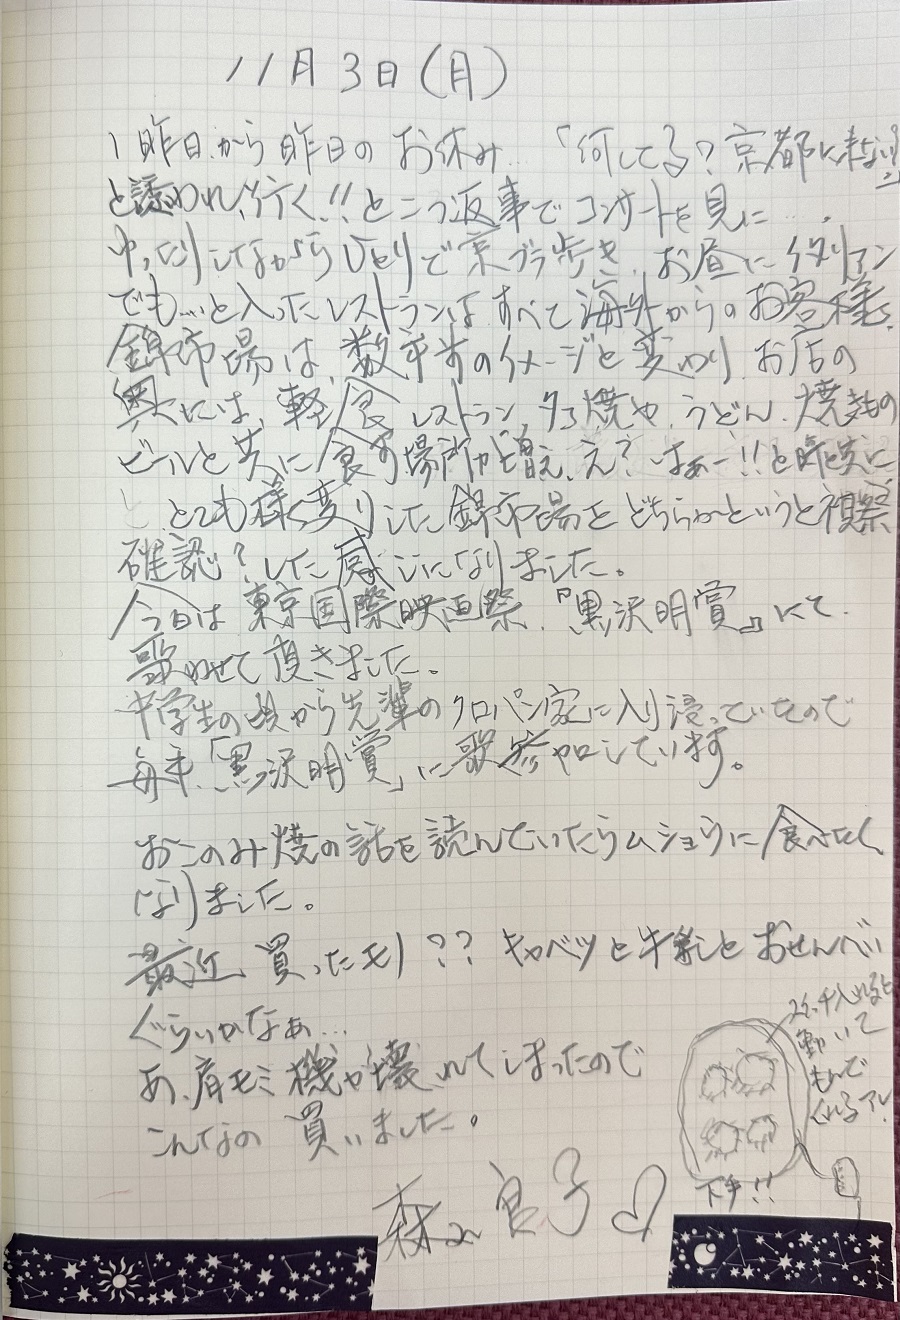 11月3日(月)
1昨日から昨日のお休み…「何してる?京都に来ない?」
と誘われ、行く!!と二つ返事でコンサートを見に….
ゆったりしながらひとりで京ブラ歩き、お昼にイタリアン
でも…と入ったレストランはすべて海外からのお客様、
錦市場は、数年前のイメージと変わり、お店の
奥には、軽食、レストラン、タコ焼や、うどん、焼きもの
ビールと共に食す場所が増え、え?はぁー!!と時と共に
とても様変りした錦市場をどちらかというと視察
確認?した感じになりました。
今日は東京国際映画祭、『黒沢明賞』にて
歌わせて頂きました。
中学生の頃から先輩のクロパン家に入り浸っていたので
毎年「黒沢明賞」に歌参加しています。
おこのみ焼の話を読んでいたらムショウに食べたく
なりました。
最近買ったモノ??キャベツと牛乳とおせんべい
ぐらいかなぁ…
あ、肩モミ機が壊れてしまったので
こんなの買いました。
スイッチ入れると
動いて
もんで
くれるアレ!
下手!!
森山良子♡